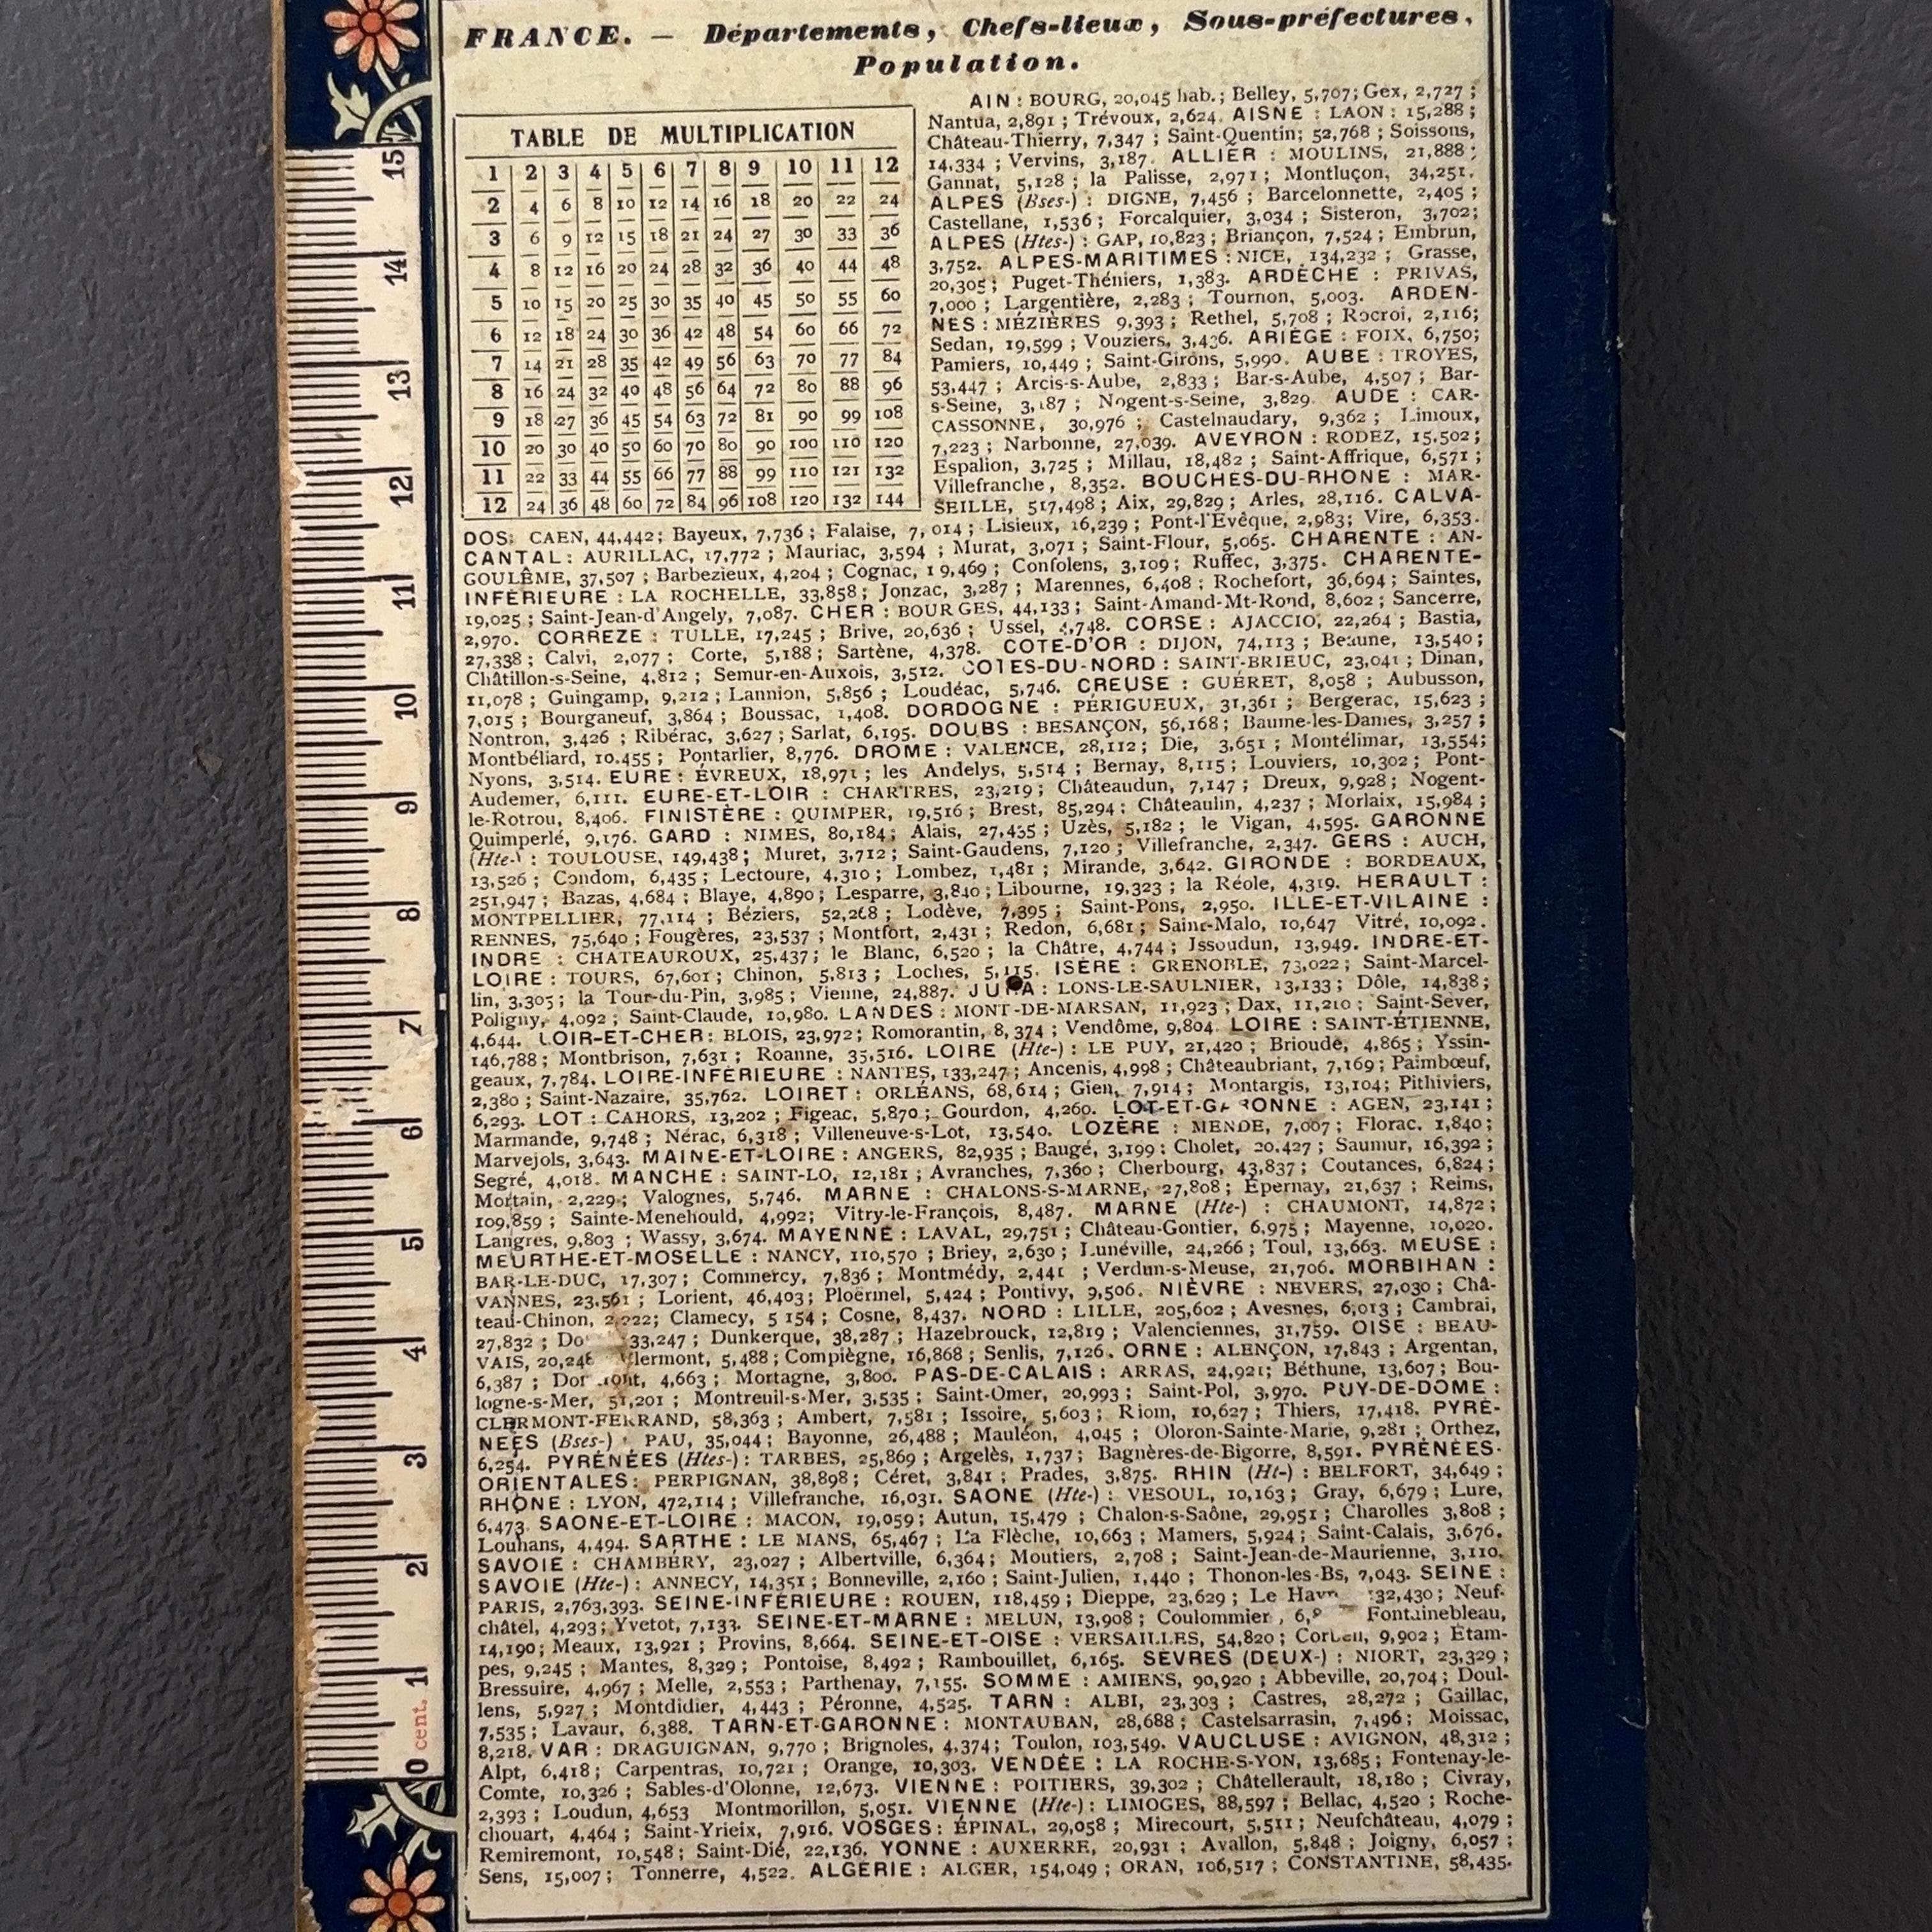 FRANCE. — Départements, Chefs-lieux, Sous-préfectures,
Population.
TABLE DE MULTIPLICATION
1 2 3 4 5 6 7 8 9 10 11 12
2 4 6 8 10 12 14 16 18 20 22 24
3 6 9 12 15 18 21 24 27 30 33 36
4 8 12 16 20 24 28 32 36 40 44 48
5 10 15 20 25 30 35 40 45 50 55 60
6 12 18 24 30 36 42 48 54 60 66 72
7 14 21 28 35 42 49 56 63 70 77 84
8 16 24 32 40 48 56 64 72 80 88 96
9 18 27 36 45 54 63 72 81 90 99 108
10 20 30 40 50 60 70 80 90 100 110 120
11 22 33 44 55 66 77 88 99 110 121 132
12 24 36 48 60 72 84 96 108 120 132 144
AIN : BOURG, 20,045 hab.; Belley, 5,707; Gex, 2,727 ;
Nantua, 2,891 ; Trévoux, 2,624. AISNE : LAON : 15,288 ;
Château-Thierry, 7,347 ; Saint-Quentin; 52,768 ; Soissons,
14,334 ; Vervins, 3,187. ALLIER : MOULINS, 21,888 ;
Gannat, 5,128 ; la Palisse, 2,971 ; Montluçon, 34,251.
ALPES (Bses-) : DIGNE, 7,456 ; Barcelonnette, 2,405 ;
Castellane, 1,536 ; Forcalquier, 3,034 ; Sisteron, 3,702;
ALPES (Htes-) : GAP, 10,823 ; Briançon, 7,524 ; Embrun,
3,752. ALPES-MARITIMES : NICE, 134,232 ; Grasse,
20,305 ; Puget-Théniers, 1,383. ARDÈCHE : PRIVAS,
7,000 ; Largentière, 2,283 ; Tournon, 5,003. ARDEN-
NES : MÉZIÈRES 9,393 ; Rethel, 5,708 ; Rocroi, 2,116;
Sedan, 19,599 ; Vouziers, 3,436. ARIÈGE : FOIX, 6,750;
Pamiers, 10,449 ; Saint-Girons, 5,990. AUBE : TROYES,
53,447 ; Arcis-s-Aube, 2,833 ; Bar-s-Aube, 4,507 ; Bar-
s-Seine, 3,187 ; Nogent-s-Seine, 3,829. AUDE : CAR-
CASSONNE, 30,976 ; Castelnaudary, 9,362 ; Limoux,
7,223 ; Narbonne, 27,039. AVEYRON : RODEZ, 15,502 ;
Espalion, 3,725 ; Millau, 18,482 ; Saint-Affrique, 6,571 ;
Villefranche, 8,352. BOUCHES-DU-RHONE : MAR-
SEILLE, 517,498 ; Aix, 29,829 ; Arles, 28,116. CALVA-
DOS: CAEN, 44,442; Bayeux, 7,736 ; Falaise, 7,014 ; Lisieux, 16,239 ; Pont-l'Evêque, 2,983; Vire, 6,353.
CANTAL : AURILLAC, 17,772 ; Mauriac, 3,594 ; Murat, 3,071 ; Saint-Flour, 5,065. CHARENTE : AN-
GOULÊME, 37,507 ; Barbezieux, 4,204 ; Cognac, 19,469 ; Confolens, 3,109; Ruffec, 3,375. CHARENTE-
INFÉRIEURE : LA ROCHELLE, 33,858 ; Jonzac, 3,287 ; Marennes, 6,408 ; Rochefort, 36,694 ; Saintes,
19,025 ; Saint-Jean-d'Angely, 7,087. CHER : BOURGES, 44,133 ; Saint-Amand-Mt-Rond, 8,602 ; Sancerre,
2,970. CORREZE : TULLE, 17,245 ; Brive, 20,636 ; Ussel, 4,748. CORSE : AJACCIO, 22,264 ; Bastia,
27,338 ; Calvi, 2,077 ; Corte, 5,188 ; Sartène, 4,378. COTE-D'OR : DIJON, 74,113 ; Beaune, 13,540 ;
Châtillon-s-Seine, 4,812 ; Semur-en-Auxois, 3,512. COTES-DU-NORD : SAINT-BRIEUC, 23,041 ; Dinan,
11,078 ; Guingamp, 9,212 ; Lannion, 5,856 ; Loudéac, 5,746. CREUSE : GUÉRET, 8,058 ; Aubusson,
7,015 ; Bourganeuf, 3,864 ; Boussac, 1,408. DORDOGNE : PÉRIGUEUX, 31,361 ; Bergerac, 15,623 ;
Nontron, 3,426 ; Ribérac, 3,627 ; Sarlat, 6,195. DOUBS : BESANÇON, 56,168 ; Baume-les-Dames, 3,257 ;
Montbéliard, 10,455 ; Pontarlier, 8,776. DROME : VALENCE, 28,112 ; Die, 3,651 ; Montélimar, 13,554;
Nyons, 3,514. EURE : ÉVREUX, 18,971 ; les Andelys, 5,514 ; Bernay, 8,115 ; Louviers, 10,302 ; Pont-
Audemer, 6,111. EURE-ET-LOIR : CHARTRES, 23,219 ; Châteaudun, 7,147 ; Dreux, 9,928 ; Nogent-
le-Rotrou, 8,406. FINISTÈRE : QUIMPER, 19,516 ; Brest, 85,294 : Châteaulin, 4,237 ; Morlaix, 15,984 ;
Quimperlé, 9,176. GARD : NIMES, 80,184 ; Alais, 27,435 ; Uzès, 5,182 ; le Vigan, 4,595. GARONNE
(Hte-) : TOULOUSE, 149,438 ; Muret, 3,712 ; Saint-Gaudens, 7,120 ; Villefranche, 2,347. GERS : AUCH,
13,526 ; Condom, 6,435 ; Lectoure, 4,310 ; Lombez, 1,481 ; Mirande, 3,642. GIRONDE : BORDEAUX,
251,947 ; Bazas, 4,684 ; Blaye, 4,890 ; Lesparre, 3,840 ; Libourne, 19,323 ; la Réole, 4,319. HERAULT :
MONTPELLIER, 77,114 ; Béziers, 52,268 ; Lodève, 7,395 ; Saint-Pons, 2,950. ILLE-ET-VILAINE :
RENNES, 75,640 ; Fougères, 23,537 ; Montfort, 2,431 ; Redon, 6,681 ; Saint-Malo, 10,647 Vitré, 10,092.
INDRE : CHATEAUROUX, 25,437 ; le Blanc, 6,520 ; la Châtre, 4,744 ; Issoudun, 13,949. INDRE-ET-
LOIRE : TOURS, 67,601 ; Chinon, 5,813 ; Loches, 5,115. ISÈRE : GRENOBLE, 73,022 ; Saint-Marcel-
lin, 3,305 ; la Tour-du-Pin, 3,985 ; Vienne, 24,887. JURA : LONS-LE-SAULNIER, 13,133 ; Dôle, 14,838 ;
Poligny, 4,092 ; Saint-Claude, 10,980. LANDES : MONT-DE-MARSAN, 11,923 ; Dax, 11,210 ; Saint-Sever,
4,644. LOIR-ET-CHER : BLOIS, 23,972 ; Romorantin, 8,374 ; Vendôme, 9,804. LOIRE : SAINT-ÉTIENNE,
146,788 ; Montbrison, 7,631 ; Roanne, 35,516. LOIRE (Hte-) : LE PUY, 21,420 ; Brioude, 4,865 ; Yssin-
geaux, 7,784. LOIRE-INFÉRIEURE : NANTES, 133,247 ; Ancenis, 4,998 ; Châteaubriant, 7,169 ; Paimbœuf,
2,380 ; Saint-Nazaire, 35,762. LOIRET : ORLÉANS, 68,614 ; Gien, 7,914 ; Montargis, 13,104; Pithiviers,
6,293. LOT : CAHORS, 13,202 ; Figeac, 5,870 ; Gourdon, 4,260. LOT-ET-GARONNE : AGEN, 23,141 ;
Marmande, 9,748 ; Nérac, 6,318 ; Villeneuve-s-Lot, 13,540. LOZÈRE : MENDE, 7,007 ; Florac. 1,840 ;
Marvejols, 3,643. MAINE-ET-LOIRE : ANGERS, 82,935 ; Baugé, 3,199 : Cholet, 20,427 ; Saumur, 16,392 ;
Segré, 4,018. MANCHE : SAINT-LO, 12,181 ; Avranches, 7,360 ; Cherbourg, 43,837 ; Coutances, 6,824 ;
Mortain, 2,229 ; Valognes, 5,746. MARNE : CHALONS-S-MARNE, 27,808 ; Épernay, 21,637 ; Reims,
109,859 ; Sainte-Menehould, 4,992; Vitry-le-François, 8,487. MARNE (Hte-) : CHAUMONT, 14,872 ;
Langres, 9,803 ; Wassy, 3,674. MAYENNE : LAVAL, 29,751 ; Château-Gontier, 6,975 ; Mayenne, 10,020.
MEURTHE-ET-MOSELLE : NANCY, 110,570 ; Briey, 2,630 ; Lunéville, 24,266 ; Toul, 13,663. MEUSE :
BAR-LE-DUC, 17,307 ; Commercy, 7,836 ; Montmédy, 2,441 ; Verdun-s-Meuse, 21,706. MORBIHAN :
VANNES, 23,561 ; Lorient, 46,403 ; Ploërmel, 5,424 ; Pontivy, 9,506. NIÈVRE : NEVERS, 27,030 ; Châ-
teau-Chinon, 2,222; Clamecy, 5 154 ; Cosne, 8,437. NORD : LILLE, 205,602 ; Avesnes, 6,013 ; Cambrai,
27,832 ; 33,247 ; Dunkerque, 38,287 ; Hazebrouck, 12,819 ; Valenciennes, 31,759. OISE : BEAU-
VAIS, 20,248 Clermont, 5,488 ; Compiègne, 16,868 ; Senlis, 7,126. ORNE : ALENÇON, 17,843 ; Argentan,
6,387 ; 4,663 ; Mortagne, 3,800. PAS-DE-CALAIS : ARRAS, 24,921; Béthune, 13,607 ; Bou-
logne-s-Mer, 51,201 ; Montreuil-s-Mer, 3,535 ; Saint-Omer, 20,993 ; Saint-Pol, 3,970. PUY-DE-DOME :
CLERMONT-FERRAND, 58,363 ; Ambert, 7,581 ; Issoire, 5,603 ; Riom, 10,627 ; Thiers, 17,418. PYRÉ-
NÉES (Bses-) : PAU, 35,044 ; Bayonne, 26,488 ; Mauléon, 4,045 ; Oloron-Sainte-Marie, 9,281 ; Orthez,
6,254. PYRÉNÉES (Htes-) : TARBES, 25,869 ; Argelès, 1,737 ; Bagnères-de-Bigorre, 8,591. PYRÉNÉES-
ORIENTALES : PERPIGNAN, 38,898 ; Céret, 3,841 ; Prades, 3,875. RHIN (Ht-) : BELFORT, 34,649 ;
RHONE : LYON, 472,114 ; Villefranche, 16,031. SAONE (Hte-) : VESOUL, 10,163 ; Gray, 6,679 ; Lure,
6,473. SAONE-ET-LOIRE : MACON, 19,059 ; Autun, 15,479 ; Chalon-s-Saône, 29,951 ; Charolles 3,808 ;
Louhans, 4,494. SARTHE : LE MANS, 65,467 ; La Flèche, 10,663 ; Mamers, 5,924 ; Saint-Calais, 3,676.
SAVOIE : CHAMBÉRY, 23,027 ; Albertville, 6,364 ; Moutiers, 2,708 ; Saint-Jean-de-Maurienne, 3,110.
SAVOIE (Hte-) : ANNECY, 14,351 ; Bonneville, 2,160 ; Saint-Julien, 1,440 ; Thonon-les-Bs, 7,043. SEINE :
PARIS, 2,763,393. SEINE-INFÉRIEURE : ROUEN, 118,459 ; Dieppe, 23,629 ; Le 132,430 ; Neuf-
châtel, 4,293 ; Yvetot, 7,133. SEINE-ET-MARNE : MELUN, 13,908 ; Coulommier , Fontainebleau,
14,190 ; Meaux, 13,921 ; Provins, 8,664. SEINE-ET-OISE : VERSAILLES, 54,820 ; Corbeil, 9,902 ; Étam-
pes, 9,245 ; Mantes, 8,329 ; Pontoise, 8,492 ; Rambouillet, 6,165. SÈVRES (DEUX-) : NIORT, 23,329 ;
Bressuire, 4,967 ; Melle, 2,553 ; Parthenay, 7,155. SOMME : AMIENS, 90,920 ; Abbeville, 20,704 ; Doul-
lens, 5,927 ; Montdidier, 4,443 ; Péronne, 4,525. TARN : ALBI, 23,303 ; Castres, 28,272 ; Gaillac,
7,535 ; Lavaur, 6,388. TARN-ET-GARONNE : MONTAUBAN, 28,688 ; Castelsarrasin, 7,496 ; Moissac,
8,218. VAR : DRAGUIGNAN, 9,770 ; Brignoles, 4,374 ; Toulon, 103,549. VAUCLUSE : AVIGNON, 48,312 ;
Alpt, 6,418 ; Carpentras, 10,721 ; Orange, 10,303. VENDÉE : LA ROCHE-S-YON, 13,685 ; Fontenay-le-
Comte, 10,326 ; Sables-d'Olonne, 12,673. VIENNE : POITIERS, 39,302 ; Châtellerault, 18,180 ; Civray,
2,393 ; Loudun, 4,653 Montmorillon, 5,051. VIENNE (Hte-) : LIMOGES, 88,597 ; Bellac, 4,520 ; Roche-
chouart, 4,464 ; Saint-Yrieix, 7,916. VOSGES : ÉPINAL, 29,058 ; Mirecourt, 5,511 ; Neufchâteau, 4,079 ;
Remiremont, 10,548 ; Saint-Dié, 22,136. YONNE : AUXERRE, 20,931 ; Avallon, 5,848 ; Joigny, 6,057 ;
Sens, 15,007 ; Tonnerre, 4,522. ALGÉRIE : ALGER, 154,049 ; ORAN, 106,517 ; CONSTANTINE, 58,435.
15
14
13
12
11
10
9
8
7
6
5
4
3
2
1
0 cent.